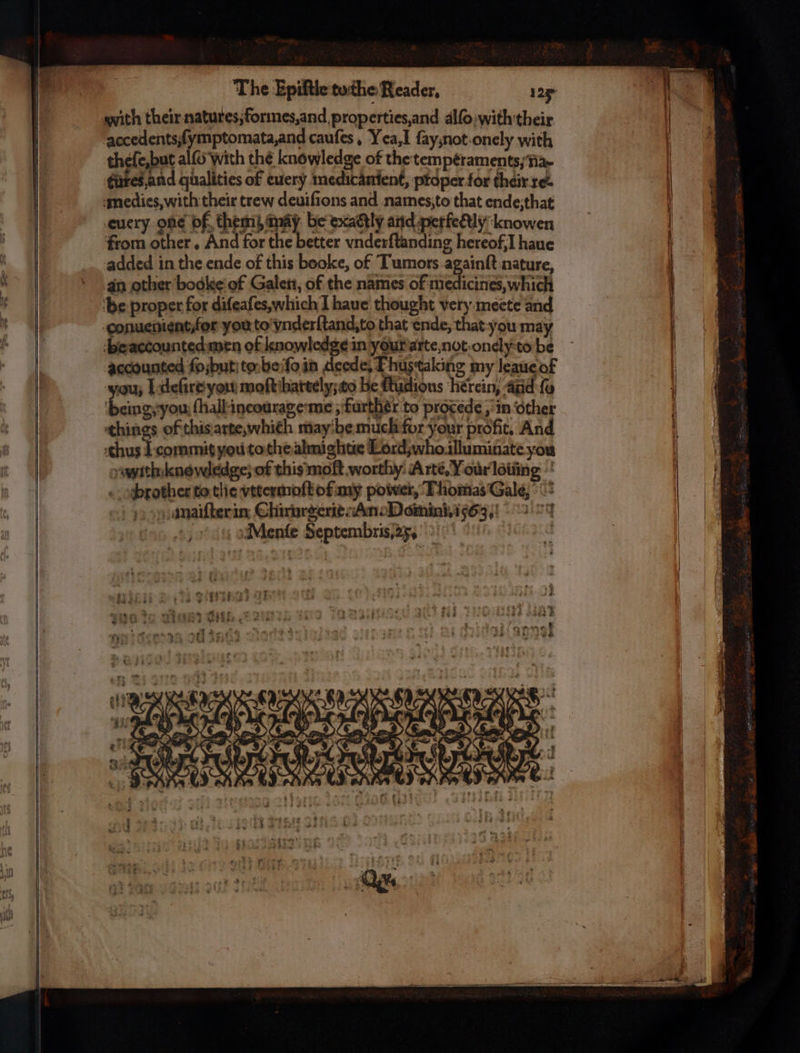 The Epiſtle to the Reader, 125
with their natures, formes, and properties, and alſo with their
accedents, ſymptomata, and cauſes, Yea, I ſay, not onely with
theſe, but alſo with the knowledge of the temperaments, na-
tures, and qualities of euery medicament, proper for their re-
medies, with their trew deuiſions and names, to that ende, that
euery one of them, may be exactly and perfectly knowen
from other. And for the better vnderſtanding hereof, I haue
added in the ende of this booke, of Tumors againſt nature,
an other booke of Galen, of the names of medicines, which
be proper for diſeaſes, which I haue thought very meete and
conuenient, for you to vnderſtand, to that ende, that you may
be accounted men of knowledge in your arte, not onely to be
accounted ſo, but to be ſo in deede, Thus taking my leaue of
you, I deſire you moſt hartely, to be ſtudious herein, and ſo
being, you ſhall incourage me, further to procede, in other
things of this arte, which may be much for your profit. And
thus I commit you to the almightie Lord, who illuminate you
with knowledge, of this moſt worthy Arte, Your louing
brother to the vttermoſt of my power, Thomas Gale,
maiſter in Chirurgerie. An. Domini, 1563,
Menſe Septembris, 25,